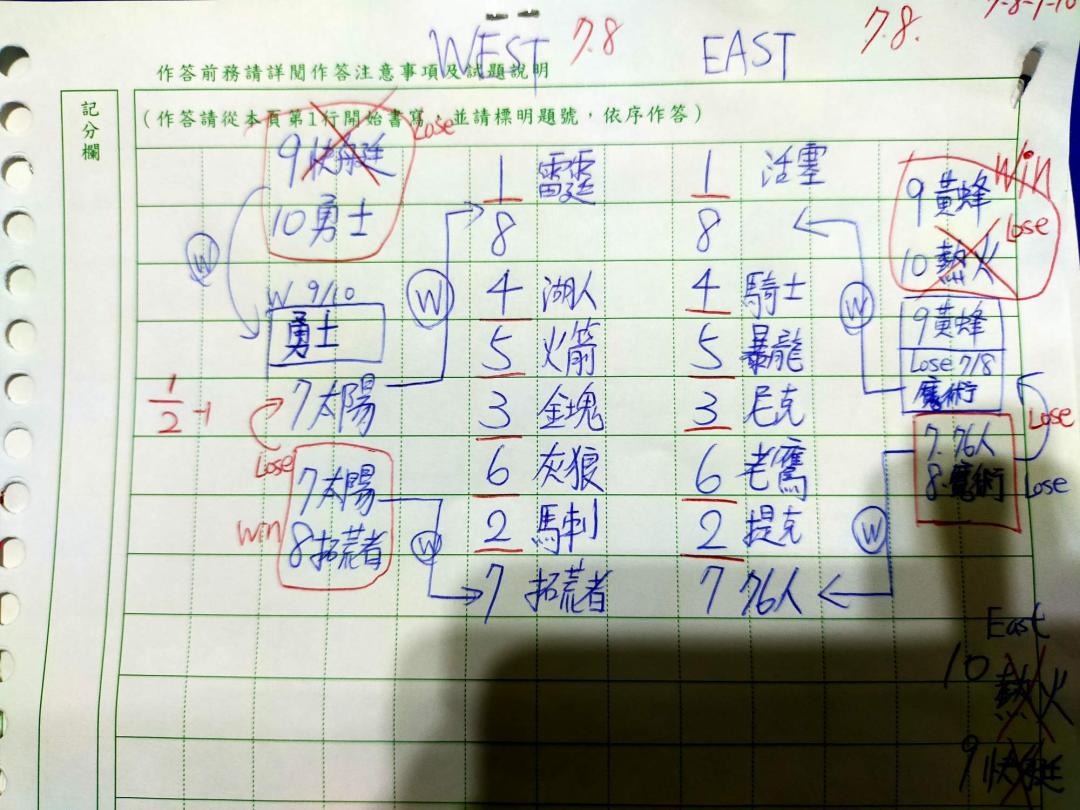 7-8-9-10
WEST 7.8 EAST 7.8.
作答前務請詳閱作答注意事項及試題說明
記分欄
(作答請從本頁第1行開始書寫,並請標明題號,依序作答)
9快艇 Lose
10勇士
W
W 9/10
勇士
7太陽
1/2
Lose
7太陽
Win 8拓荒者
W
W
1 雷霆
8
4 湖人
5 火箭
3 金塊
6 灰狼
2 馬刺
7 拓荒者
1 活塞
8
4 騎士
5 暴龍
3 尼克
6 老鷹
2 提克
7 76人
Win
9黃蜂
Lose
10熱火
W
9黃蜂
Lose 7/8
魔術
Lose
7.76人
8.魔術 Lose
W
East
10
熱火
9快艇